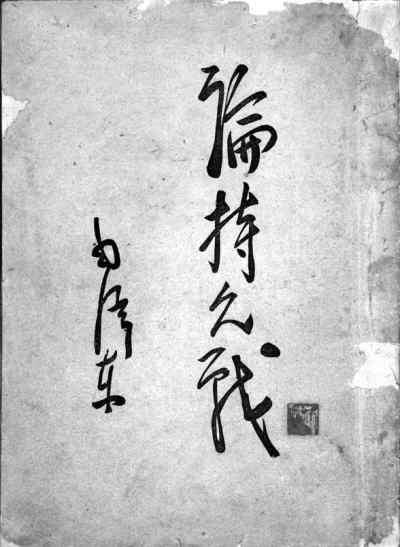 論持久戰
毛澤东